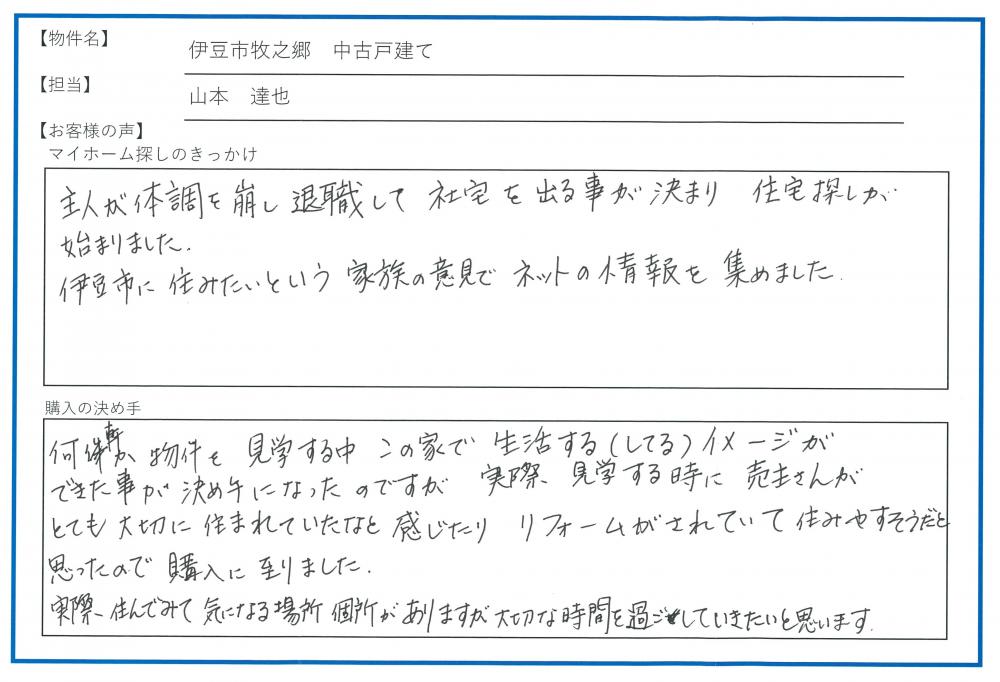 【物件名】
伊豆市牧之郷　中古戸建て
【担当】
山本　達也
【お客様の声】
マイホーム探しのきっかけ
主人が体調を崩し退職して 社宅を出る事が決まり 住宅探しが
始まりました.
伊豆市に住みたいという家族の意見でネットの情報を集めました.
購入の決め手
何軒か物件を見学する中 この家で生活する(してる)イメージが
できた事が決め手になったのですが 実際、見学する時に売主さんが
とても大切に住まれていたなと感じたり リフォームがされていて住みやすそうだと
思ったので購入に至りました.
実際、住んでみて気になる場所 個所がありますが大切な時間を過ごしていきたいと思います.